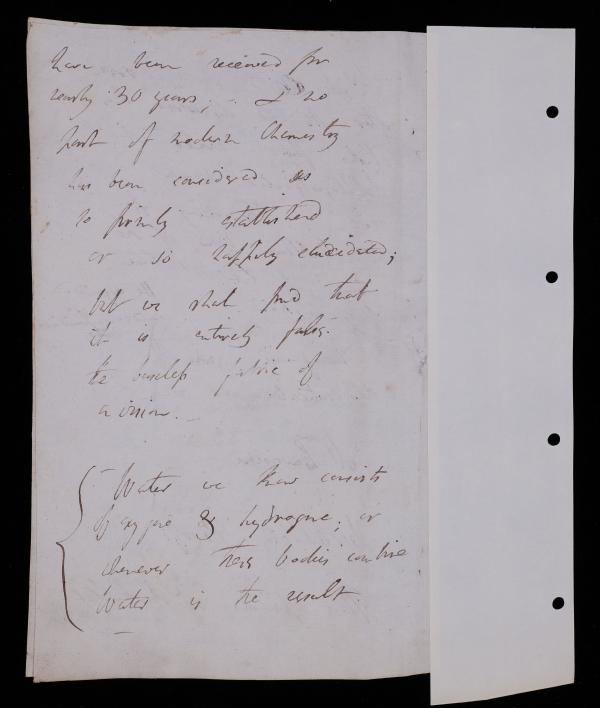 have been received for
nearly 30 years; & no
part of modern Chemistry
has been considered as
so firmly established
or so happily elucidated;
but we shall find that
it is entirely false.
the baseless fabric of
a vision.
Water we know consists
of oxygene & hydrogene; or
whenever these bodies combine
Water is the result.